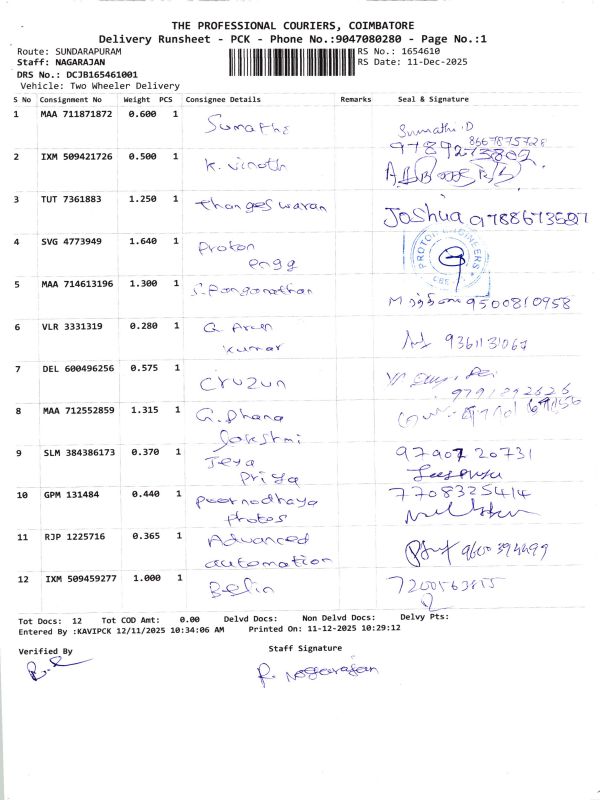 THE PROFESSIONAL COURIERS, COIMBATORE
Delivery Runsheet - PCK - Phone No.:9047080280 - Page No.:1
Route: SUNDARAPURAM RS No.: 1654610
Staff: NAGARAJAN RS Date: 11-Dec-2025
DRS No.: DCJB165461001
Vehicle: Two Wheeler Delivery
S No Consignment No Weight PCS Consignee Details Remarks Seal & Signature
1 MAA 711871872 0.600 1 Sumathi Sumathi.D
8667875728
2 IXM 509421726 0.500 1 K. Vinoth
3 TUT 7361883 1.250 1 Thangeswaran Joshua 9788673587
4 SVG 4773949 1.640 1 Proton
engg
PROTON ENGINEERS
5 MAA 714613196 1.300 1 9500810958
6 VLR 3331319 0.280 1 G. Arun
Kumar
7 DEL 600496256 0.575 1 Cruzun
8 MAA 712552859 1.315 1 G. Dhana
Lakshmi
9 SLM 384386173 0.370 1 Jeya
Priya
97907 20731
10 GPM 131484 0.440 1 Poornodhaya
Photos
7708325414
11 RJP 1225716 0.365 1 Advanced
automation
9600394499
12 IXM 509459277 1.000 1 Befin
Tot Docs: 12 Tot COD Amt: 0.00 Delvd Docs: Non Delvd Docs: Delvy Pts:
Entered By :KAVIPCK 12/11/2025 10:34:06 AM Printed On: 11-12-2025 10:29:12
Verified By Staff Signature
R. Nagarajan